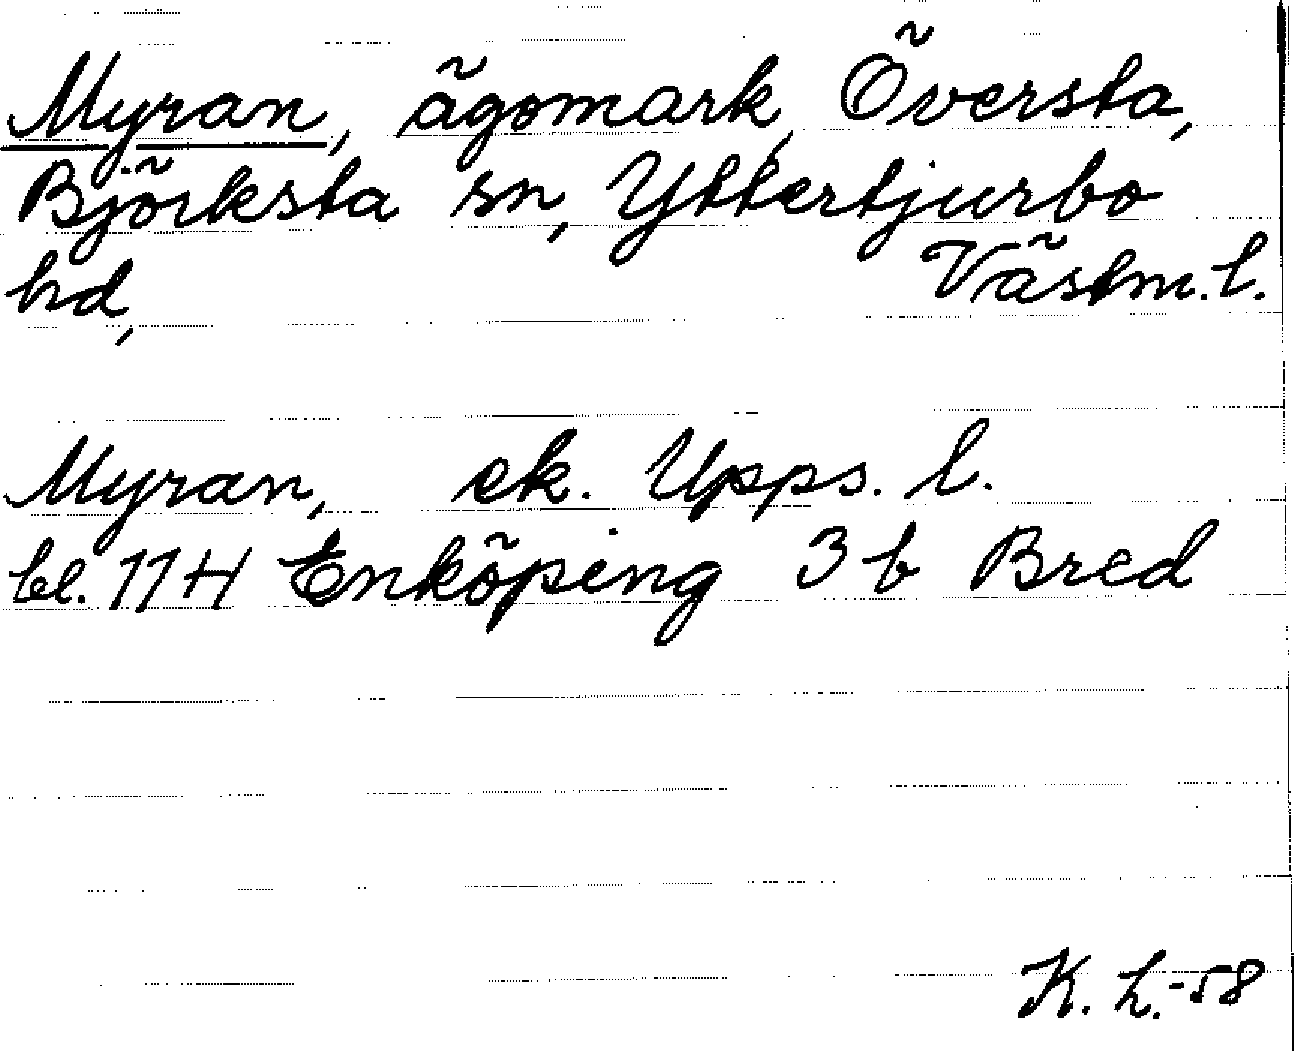 Myran, ägomark, Översta,
Björksta sn, Yttertjurbo
hd, Västm. l.
Myran, ek. Upps. l.
bl. 11H Enköping 3 b Bred
K. L.-58